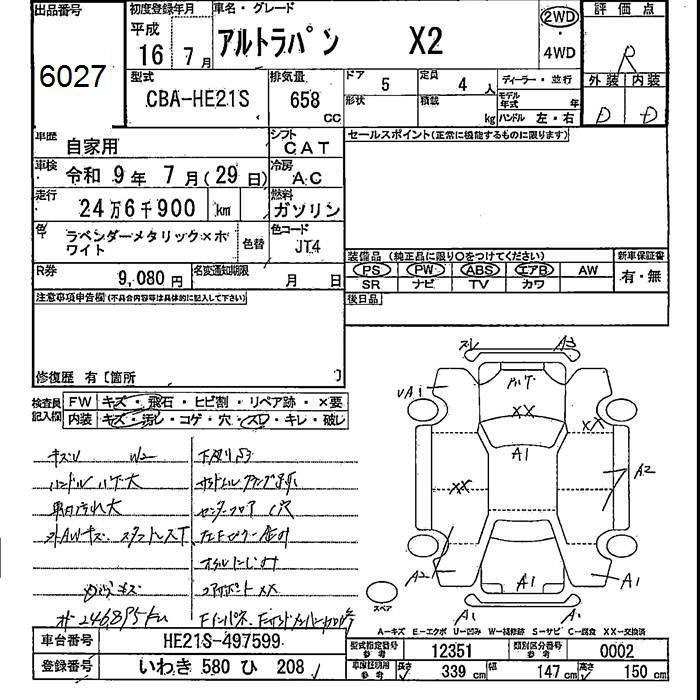 出品番号
6027
初度登録年月
平成 16 7月
車名・グレード
アルトラパン X2
2WD
・
4WD
評価点
R
外装 内装
D D
型式
CBA-HE21S
排気量
658 cc
ドア 5
定員 4 人
形状
積載 kg
ディーラー・並行
モデル年式 年
ハンドル 左・右
車歴 自家用
シフト CAT
セールスポイント(正常に機能するものに限ります)
車検 令和 9年 7月(29日)
冷房 AC
走行 24万6千900 km
燃料 ガソリン
色 ラベンダーメタリック×ホワイト
色替
色コード JT4
R券 9,080円
名変通知期限 月 日
装備品(純正品に限り○をつけてください)
PS PW ABS エアB AW
SR ナビ TV カワ
新車保証書
有・無
後日品
注意事項申告欄(不具合内容等は具体的に記入して下さい)
修復歴 有〔箇所 〕
検査員記入欄
FW キズ・飛石・ヒビ割・リペア跡・×要
内装 キズ・汚レ・コゲ・穴・スレ・キレ・破レ
キズ W2
ハンドル ハゲ大
車内汚れ大
オイルにじみ
コアサポートXX
246895km
スレ A3
UA1
XX
XX
A1
XX
A2
A2
A1
A1
A1
A1
スペア
A-キズ E-エクボ U-凹み W-補修跡 S-サビ C-腐食 XX-交換済
車台番号 HE21S-497599
登録番号 いわき 580 ひ 208
型式指定番号 参考 12351
類別区分番号 参考 0002
車庫証明用 参考 長さ 339 cm 幅 147 cm 高さ 150 cm